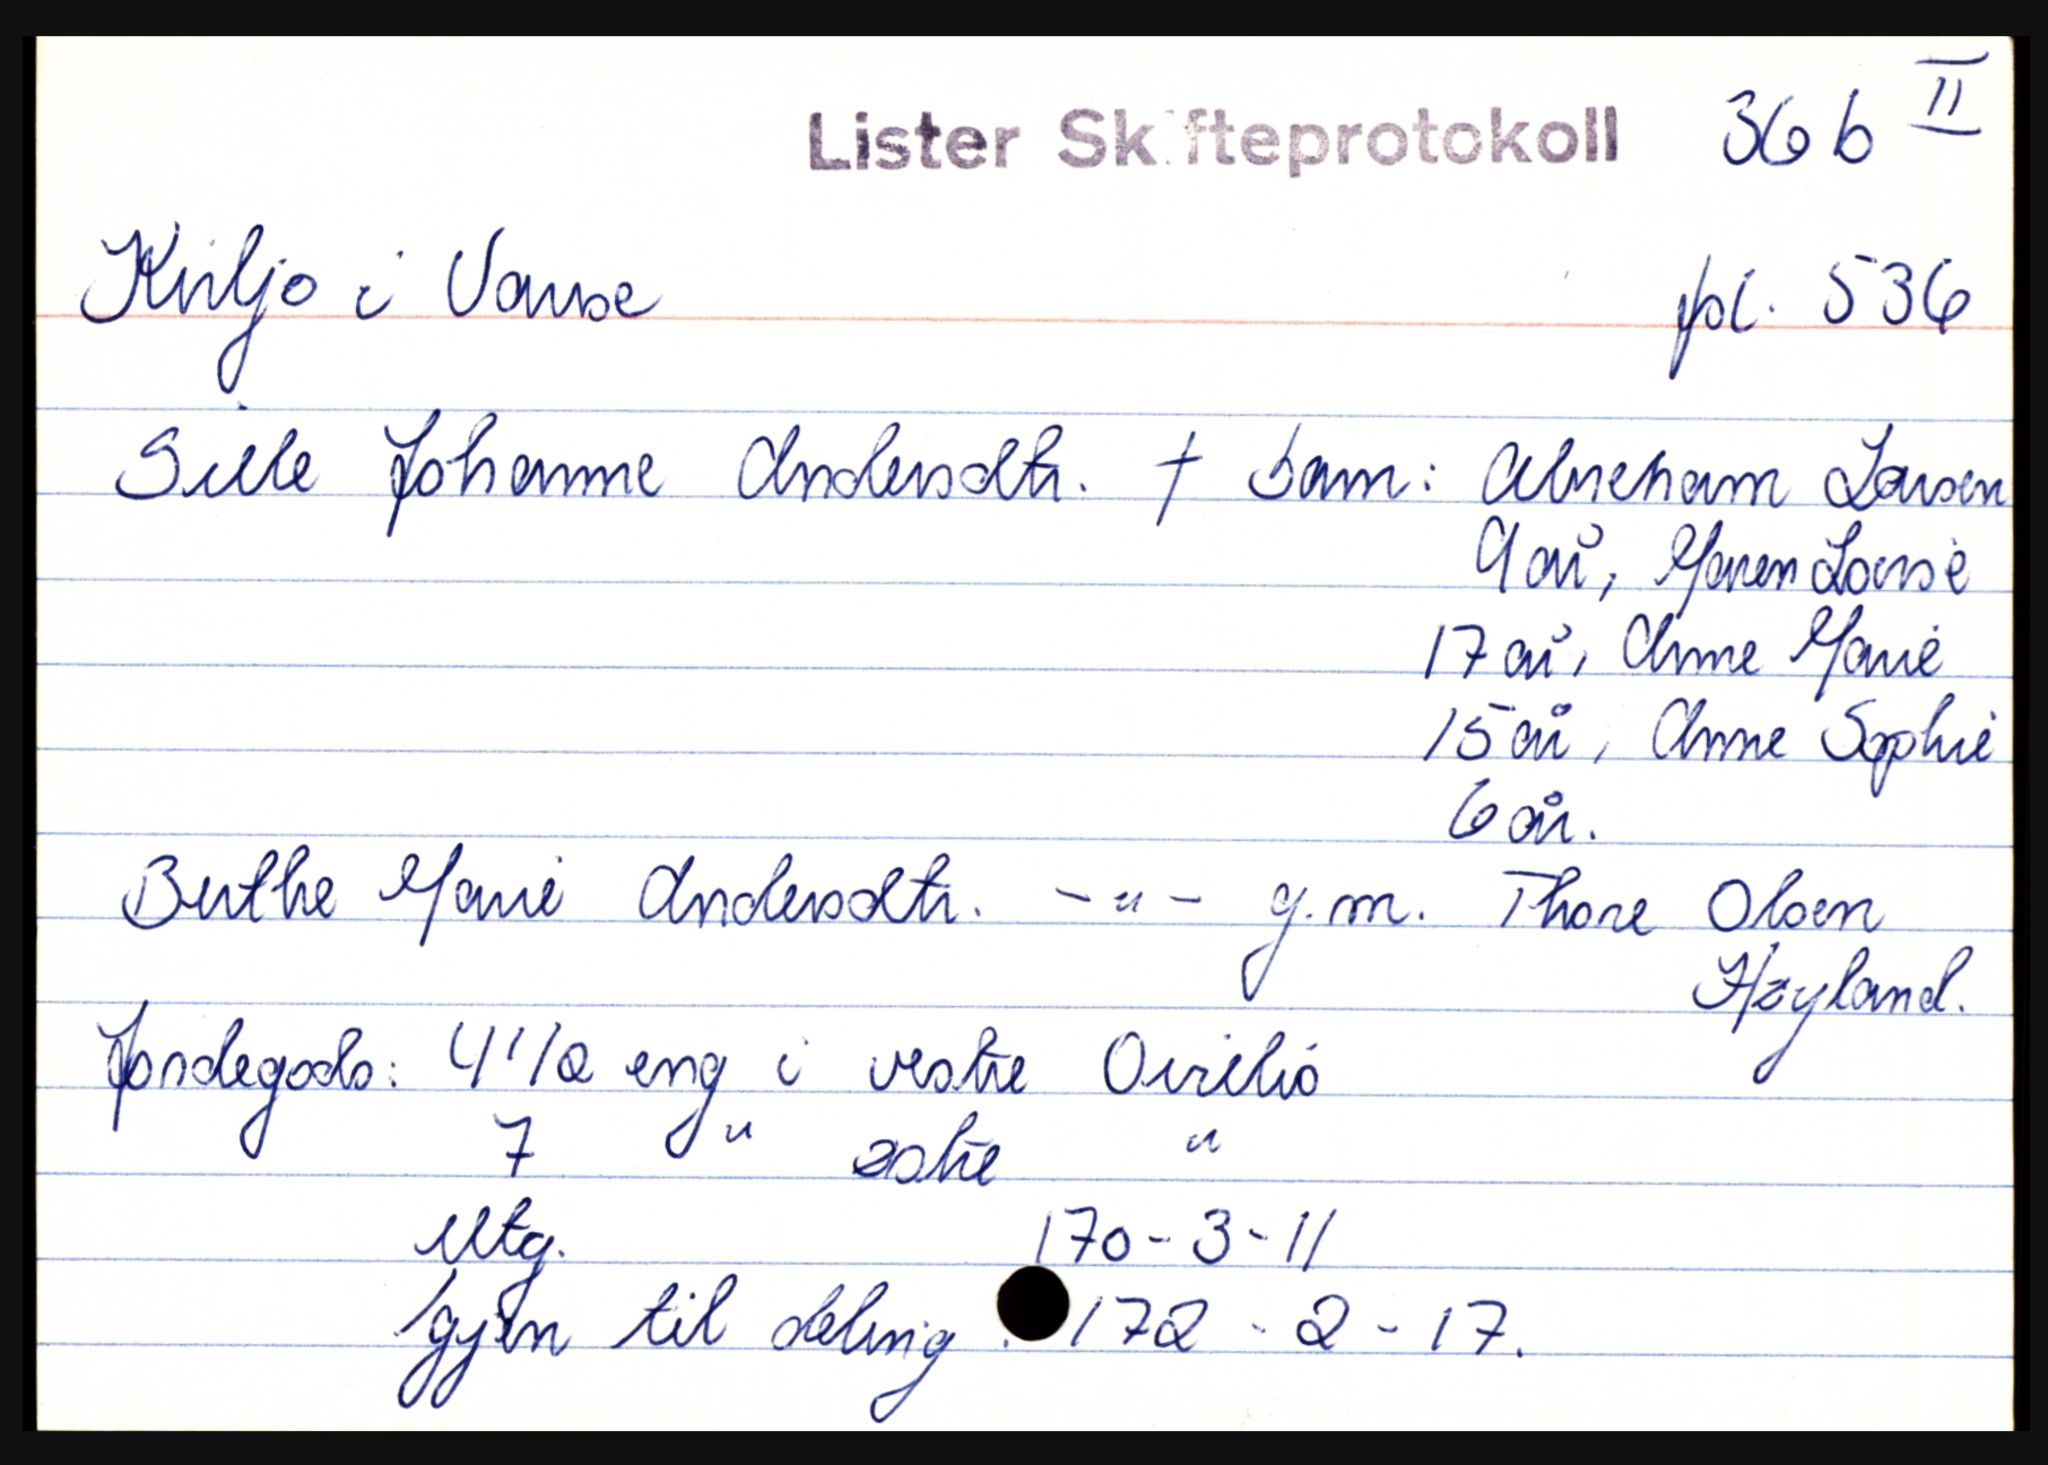 Lister Skifteprotokoll 36 b II
Kviljo i Vanse fol. 536
Sille Johanne Andersdtr. † barn: Abreham Larsen
9 år, Maren Lovise
17 år, Anne Marie
15 år, Anne Sophie
6 år.
Berthe Marie Andersdtr. -"- g.m. Thore Olsen
Høyland.
Jordegods: 4 1/2 eng i vestre
7 " østre "
Utg. 170-3-11
Igjen til deling. 172-2-17.